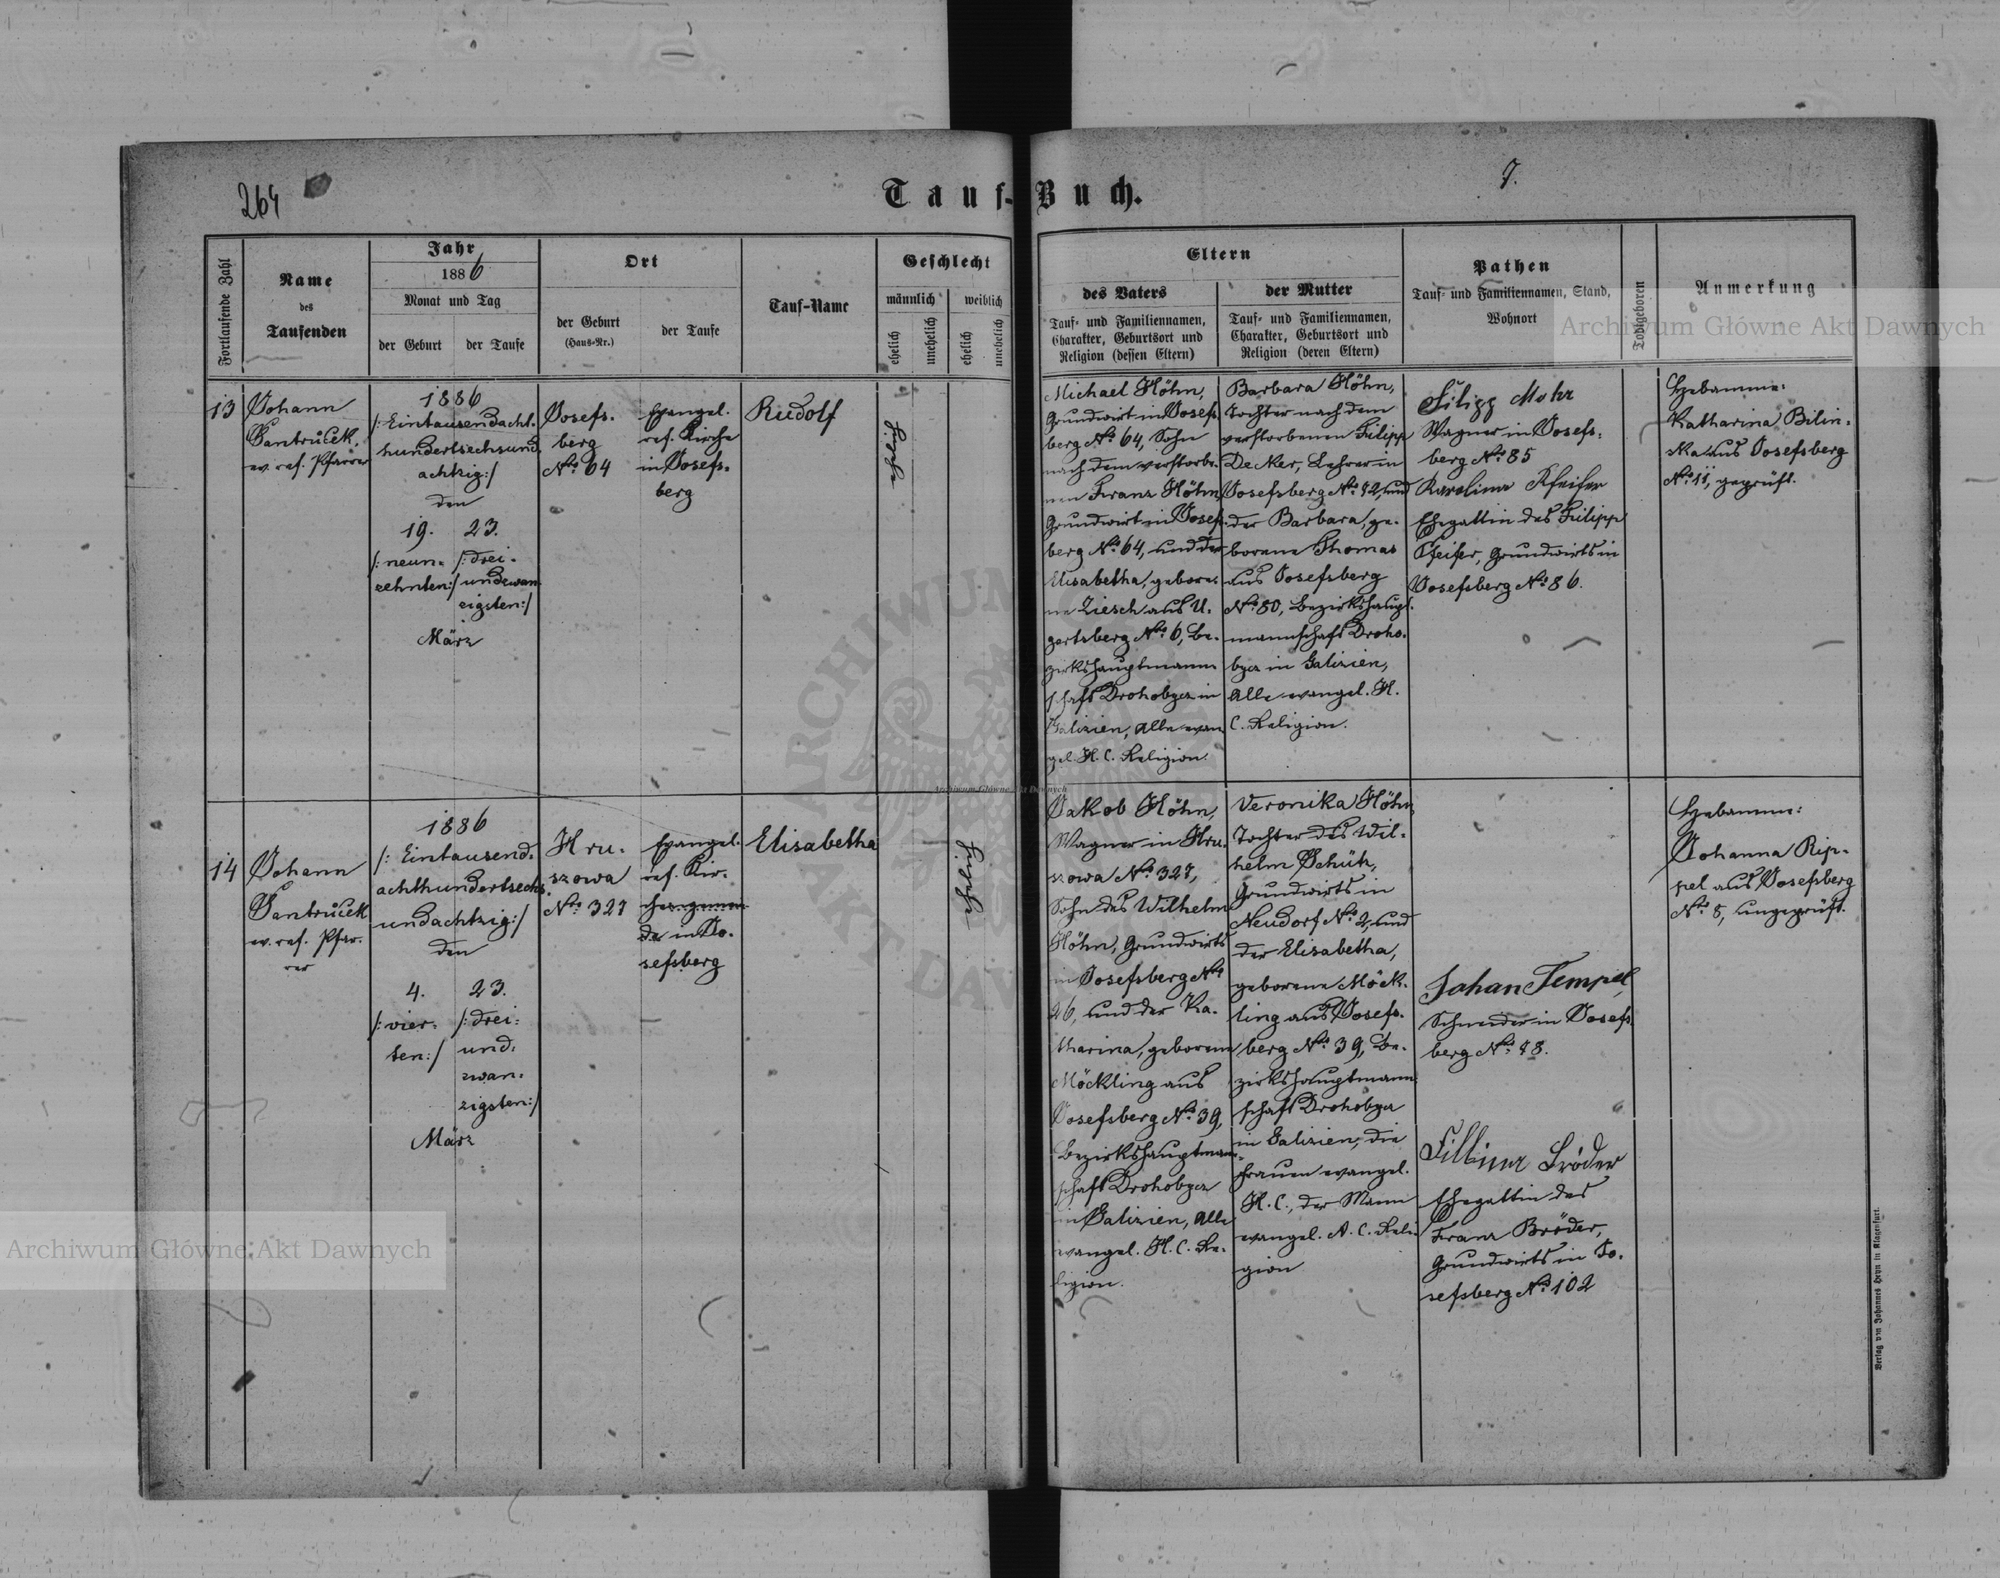 264
Tauf-Buch.
7.
Fortlaufende Zahl
Name
des
Taufenden
Jahr
1886
Monat und Tag
der Geburt
der Taufe
Ort
der Geburt
(Haus-Nr.)
der Taufe
Tauf-Name
Geschlecht
männlich
weiblich
ehelich
unehelich
ehelich
unehelich
Eltern
des Vaters
Tauf- und Familiennamen,
Charakter, Geburtsort und
Religion (dessen Eltern)
der Mutter
Tauf- und Familiennamen,
Charakter, Geburtsort und
Religion (deren Eltern)
Pathen
Tauf- und Familiennamen, Stand,
Wohnort
Todtgeboren
Anmerkung
13
Johann
Santrůček,
ev. ref. Pfarrer
1886
/: Eintausendacht-
hundertsechsund
achtzig :/
den
19. 23.
/: neun- /: drei-
zehnten :/ undzwan-
zigsten :/
März
Josefs-
berg
No 64
Evangel.
ref. Kirche
in Josefs-
berg
Rudolf
ehelich
Michael Höhn,
Grundwirt in Josefs-
berg No 64, Sohn
nach dem verstorbe-
nen Franz Höhn,
Grundwirt in Josefs-
berg No 64, und der
Elisabetha, gebore-
ne Ziesch aus U-
gartsberg No 6, Be-
zirkshauptmann-
schaft Drohobycz in
Galizien, Alle evan
gel. H. C. Religion.
Barbara Höhn,
Tochter nach dem
verstorbenen Filipp
Decker, Lehrer in
Josefsberg No 42, und
der Barbara, ge-
borene Thomas
aus Josefsberg
No 80, Bezirkshaupt-
mannschaft Droho-
bycz in Galizien,
Alle evangel. H.
C. Religion.
Filipp Mohr
Wagner in Josefs-
berg No 85
Karolina Pfeifer
Ehegattin des Filipp
Pfeifer, Grundwirts in
Josefsberg No 86.
Hebamme:
Katharina Bilin-
ska aus Josefsberg
No 11, geprüft.
14
Johann
Santrůček
ev. ref. Pfar-
rer
1886
/: Eintausend-
achthundertsechs
undachtzig :/
den
4. 23.
/: vier- /: drei-
ten :/ und-
zwan-
zigsten :/
März
Hru-
szowa
No 327
Evangel.
ref. Kir-
chengemein
de in Jo-
sefsberg
Elisabetha
ehelich
Jakob Höhn,
Wagner in Hru-
szowa No 327,
Sohn des Wilhelm
Höhn, Grundwirts
in Josefsberg No
26, und der Ka-
tharina, geborene
Möckling aus
Josefsberg No 39,
Bezirkshauptmann-
schaft Drohobycz
in Galizien, Alle
evangel. H. C. Re-
ligion.
Veronika Höhn,
Tochter des Wil-
helm Schütz,
Grundwirts in
Neudorf No 2, und
der Elisabetha,
geborene Möck-
ling aus Josefs-
berg No 39, Be-
zirkshauptmann-
schaft Drohobycz
in Galizien, die
Frauen evangel.
H. C., der Mann
evangel. A. C. Reli-
gion
Johan Tempel,
Schneider in Josefs-
berg No 48.
Bröder
Ehegattin des
Franz Bröder,
Grundwirts in Jo-
sefsberg No 102
Hebamme:
Johanna Rip-
pel aus Josefsberg
No 8, ungeprüft.
Verlag von Johannes Heyn in Klagenfurt.
Archiwum Główne Akt Dawnych
Archiwum Główne Akt Dawnych
Archiwum Główne Akt Dawnych